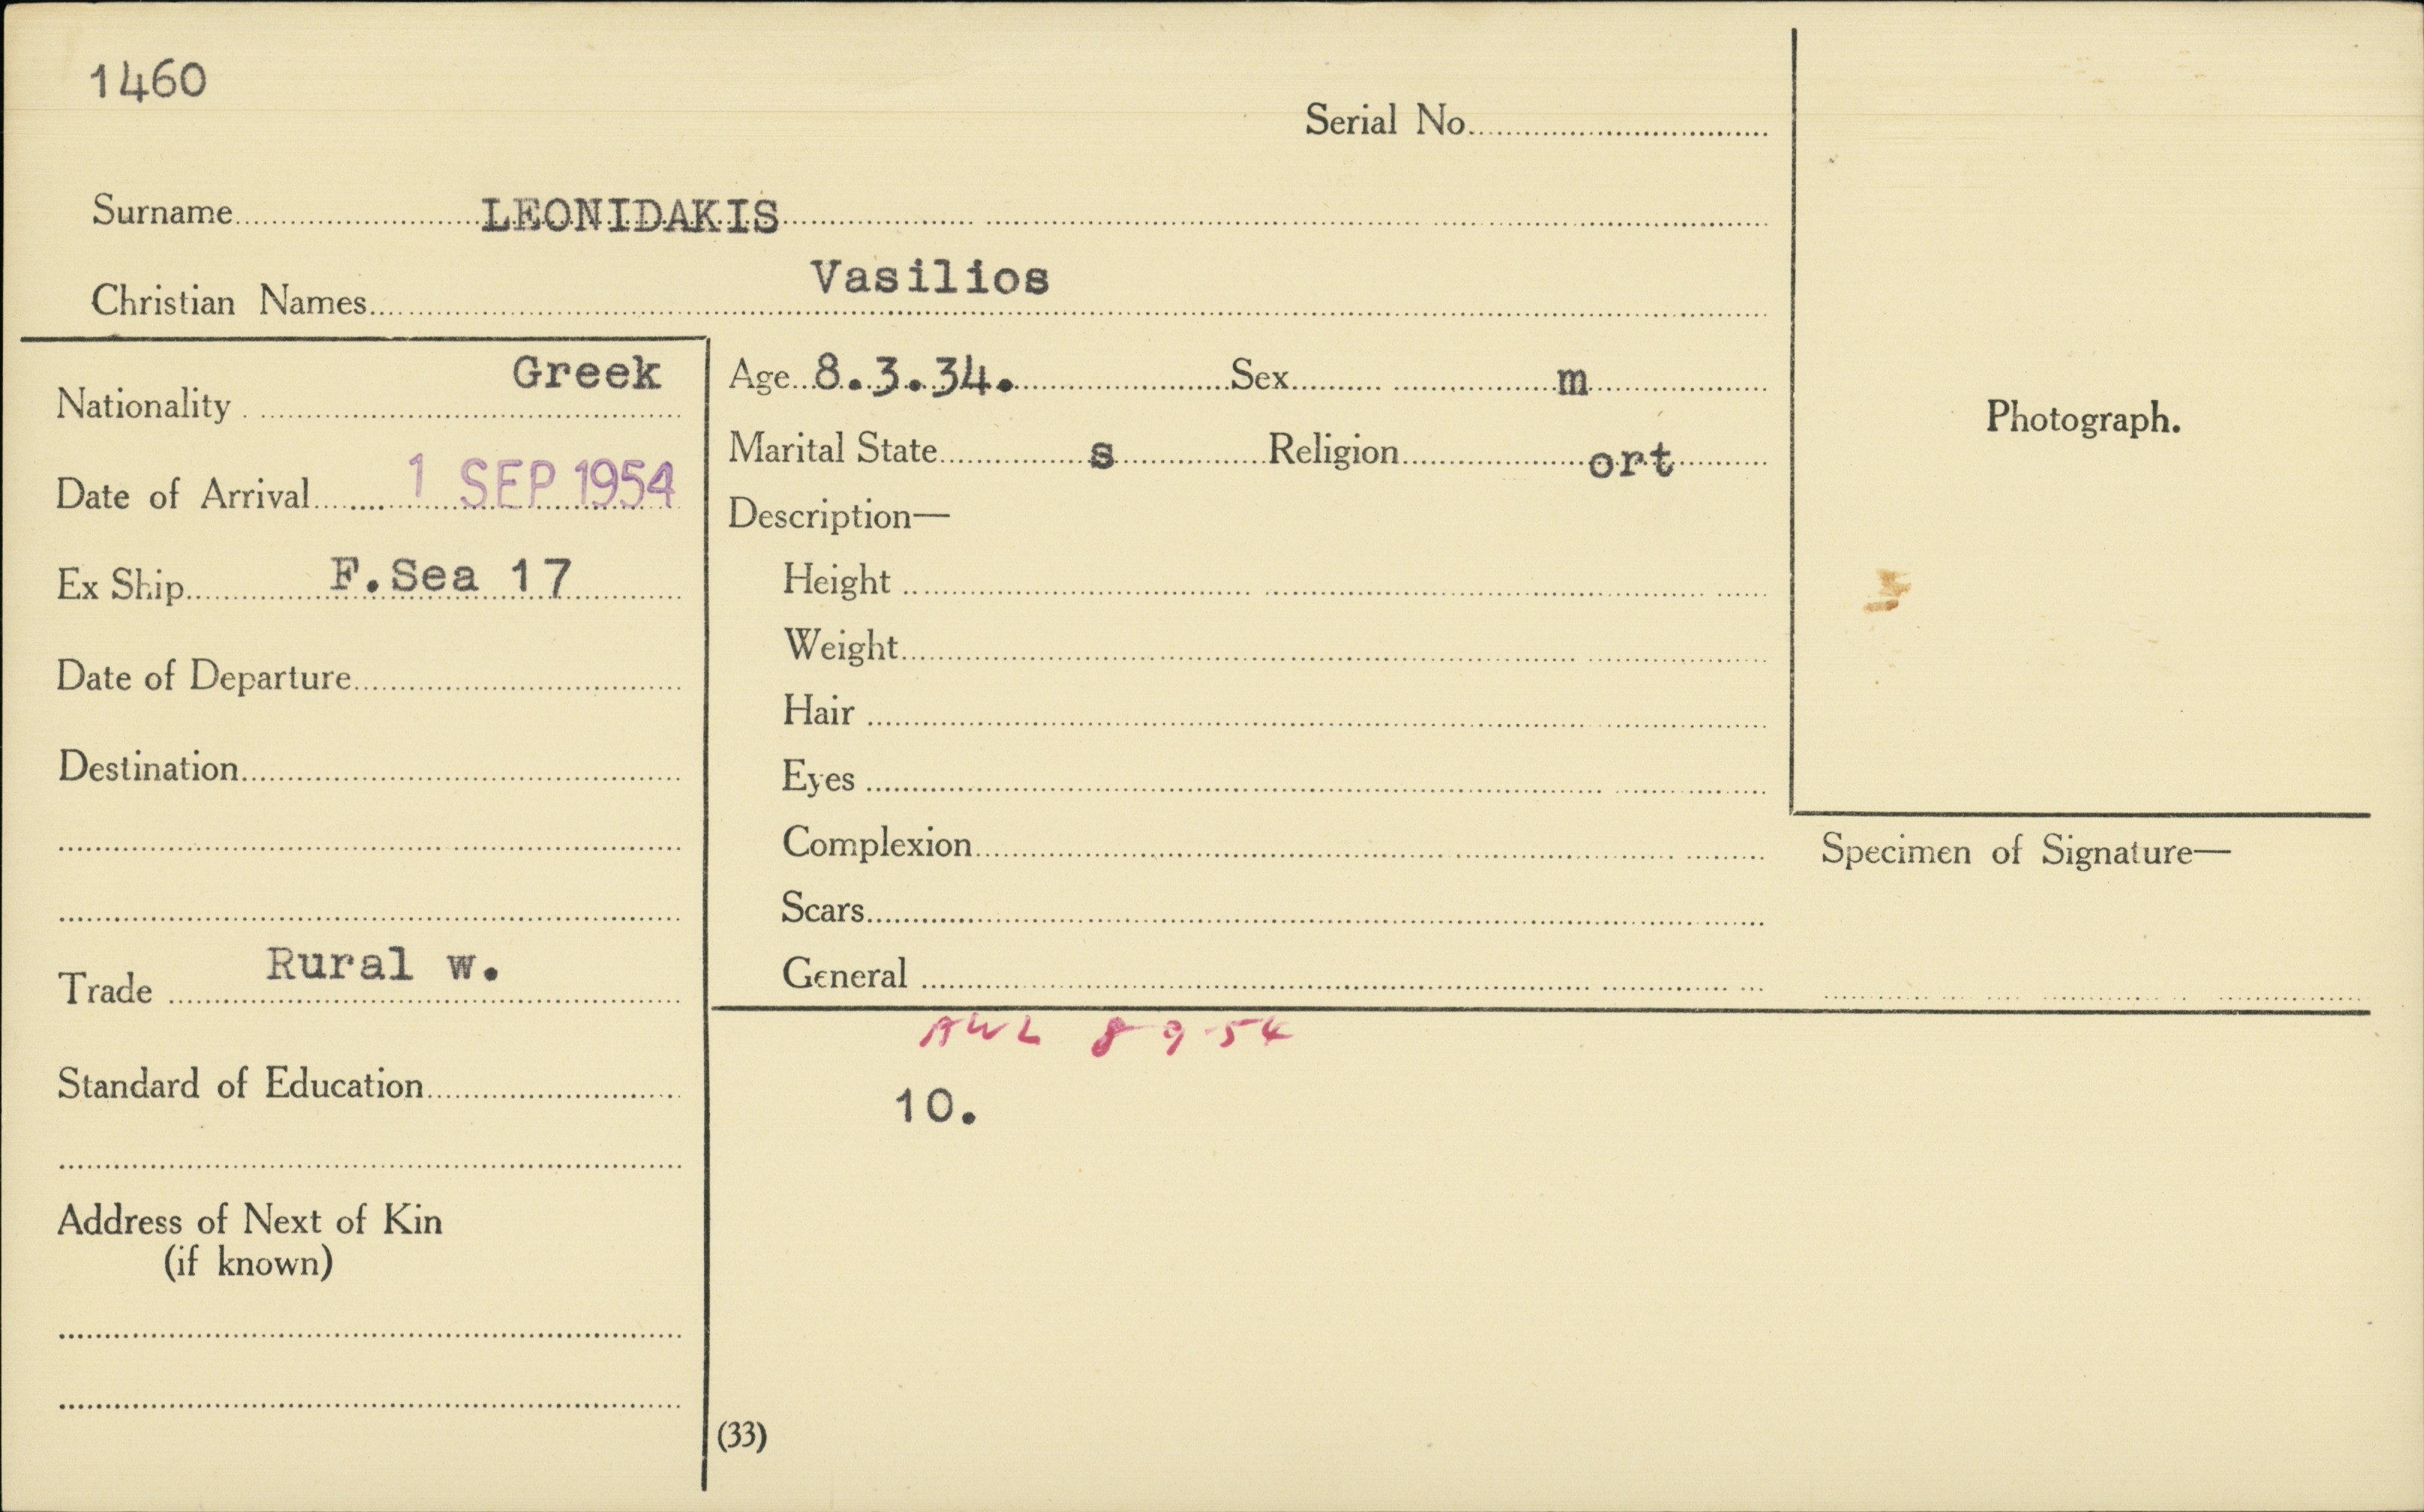 1460
Serial No.
Surname LEONIDAKIS
Christian Names Vasilios
Nationality Greek
Date of Arrival 1 SEP 1954
Ex Ship F.Sea 17
Date of Departure
Destination
Trade Rural w.
Standard of Education
Address of Next of Kin
(if known)
Age 8.3.34. Sex m
Marital State s Religion ort
Description—
Height
Weight
Hair
Eyes
Complexion
Scars
General
Photograph.
Specimen of Signature—
AWL 8 9 54
10.
(33)